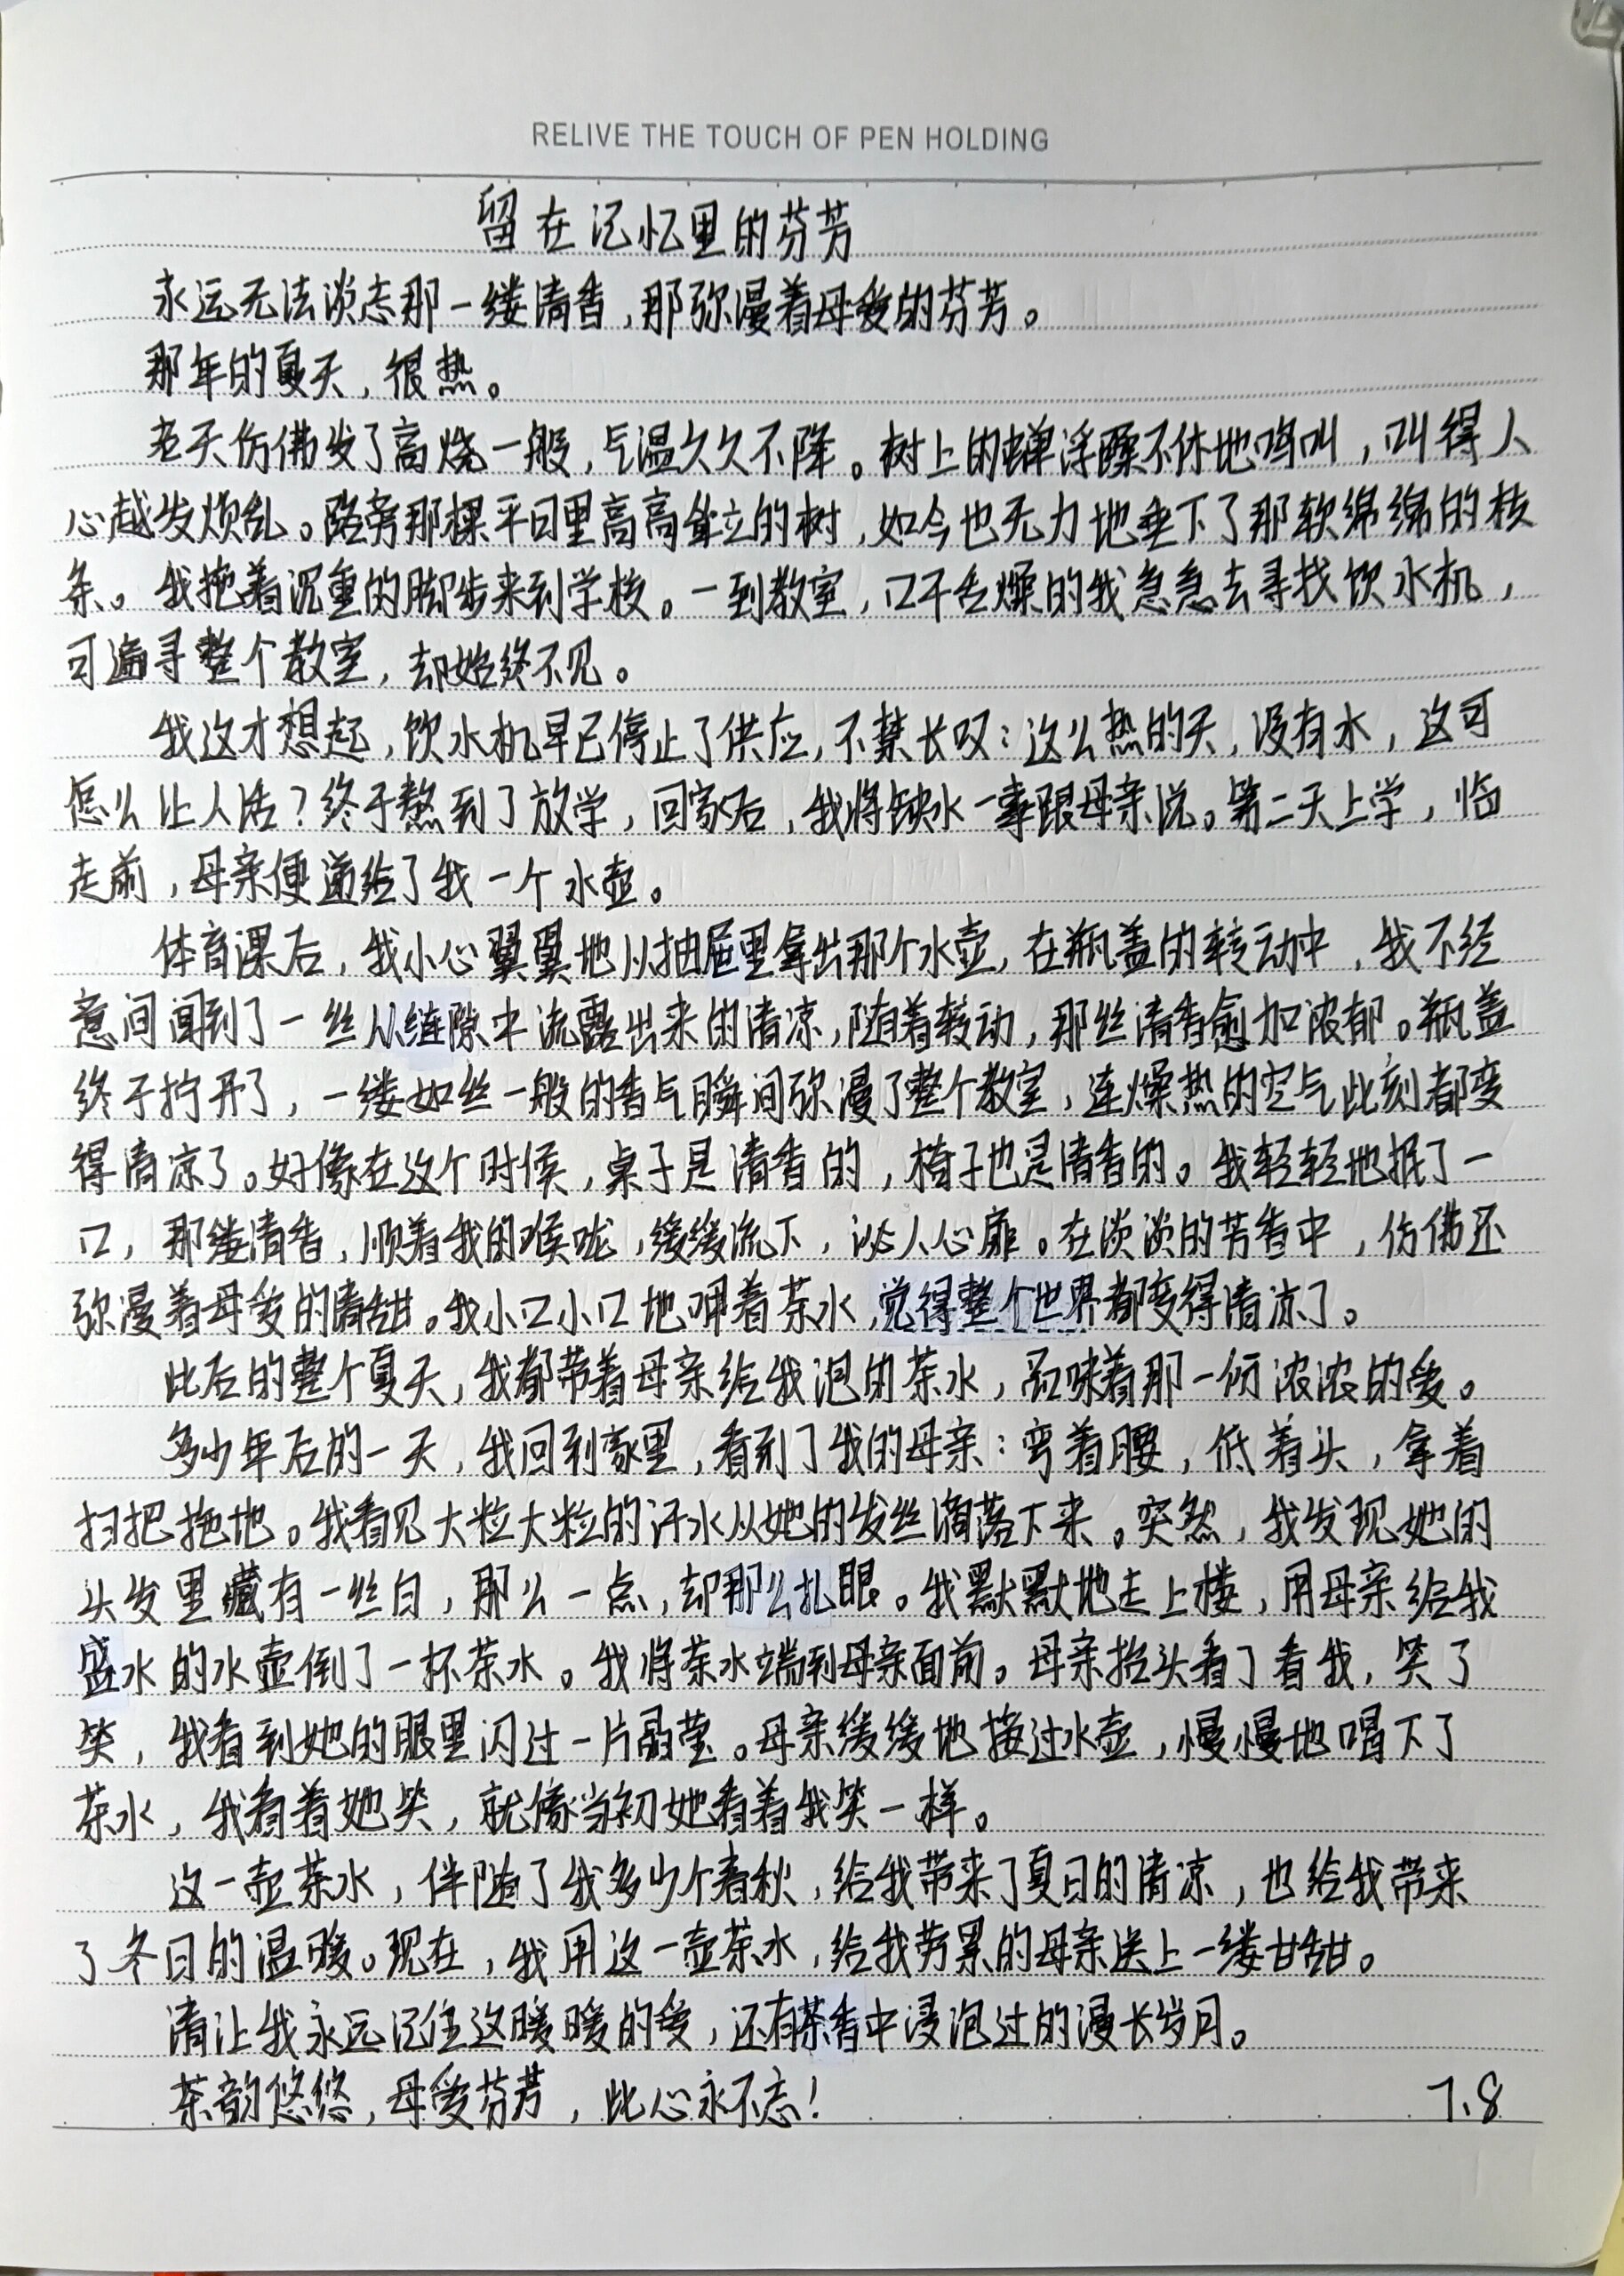 RELIVE THE TOUCH OF PEN HOLDING
留在记忆里的芬芳
永远无法淡忘那一缕清香,那弥漫着母爱的芬芳。
那年的夏天,很热。
老天仿佛发了高烧一般,气温久久不降。树上的蝉浮躁不休地鸣叫,叫得人
心越发烦乱。路旁那棵平日里高高耸立的树,如今也无力地垂下了那软绵绵的枝
条。我拖着沉重的脚步来到学校。一到教室,口干舌燥的我急急去寻找饮水机,
可遍寻整个教室,却始终不见。
我这才想起,饮水机早已停止了供应,不禁长叹:这么热的天,没有水,这可
怎么让人活?终于熬到了放学,回家后,我将缺水一事跟母亲说。第二天上学,临
走前,母亲便递给了我一个水壶。
体育课后,我小心翼翼地从抽屉里拿出那个水壶,在瓶盖的转动中,我不经
意间闻到了一丝从缝隙中流露出来的清凉,随着转动,那丝清香愈加浓郁。瓶盖
终于拧开了,一缕如丝一般的香气瞬间弥漫了整个教室,连燥热的空气此刻都变
得清凉了。好像在这个时候,桌子是清香的,椅子也是清香的。我轻轻地抿了一
口,那缕清香,顺着我的喉咙,缓缓流下,沁人心扉。在淡淡的芳香中,仿佛还
弥漫着母爱的清甜。我小口小口地呷着茶水,觉得整个世界都变得清凉了。
此后的整个夏天,我都带着母亲给我泡的茶水,品味着那一份浓浓的爱。
多少年后的一天,我回到家里,看到了我的母亲:弯着腰,低着头,拿着
扫把拖地。我看见大粒大粒的汗水从她的发丝滴落下来。突然,我发现她的
头发里藏有一丝白,那么一点,却那么扎眼。我默默地走上楼,用母亲给我
盛水的水壶倒了一杯茶水。我将茶水端到母亲面前。母亲抬头看了看我,笑了
笑,我看到她的眼里闪过一片晶莹。母亲缓缓地接过水壶,慢慢地喝下了
茶水,我看着她笑,就像当初她看着我笑一样。
这一壶茶水,伴随了我多少个春秋,给我带来了夏日的清凉,也给我带来
了冬日的温暖。现在,我用这一壶茶水,给我劳累的母亲送上一缕甘甜。
请让我永远记住这暖暖的爱,还有茶香中浸泡过的漫长岁月。
茶韵悠悠,母爱芬芳,此心永不忘!
7.8